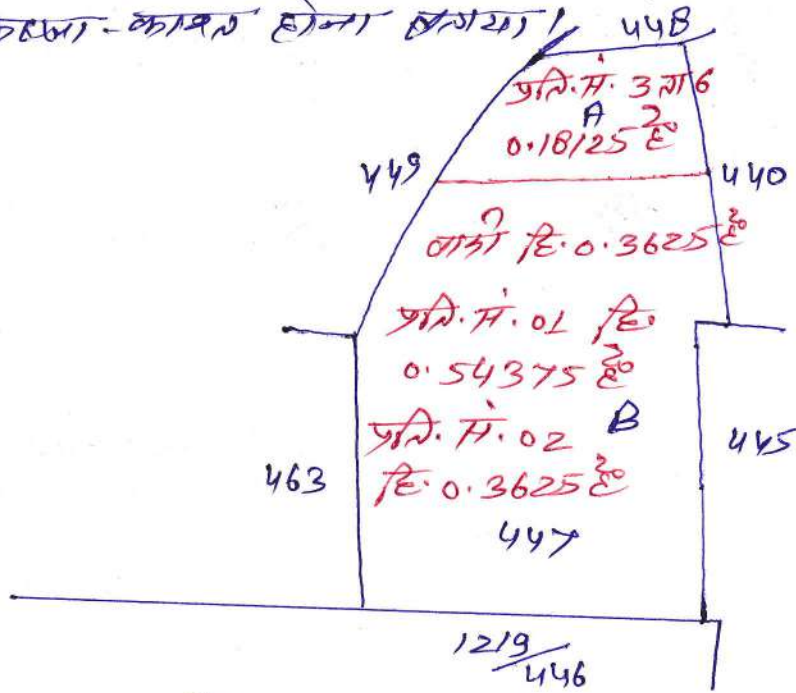 कब्जा-काश्त होना बताया।
448
प्रति.सं. 3 ता 6
A
0.18125 है०
449
440
वादी हि. 0.3625 है०
प्रति.सं. 01 हि.
0.54375 है०
प्रति.सं. 02 B
हि. 0.3625 है०
445
463
447
1219/446